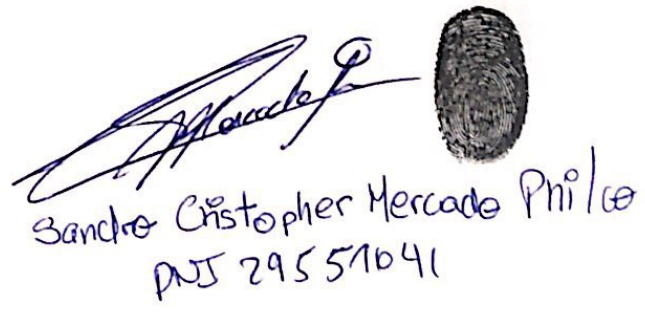 Sandro Cristopher Mercado Philco
DNI 29551041